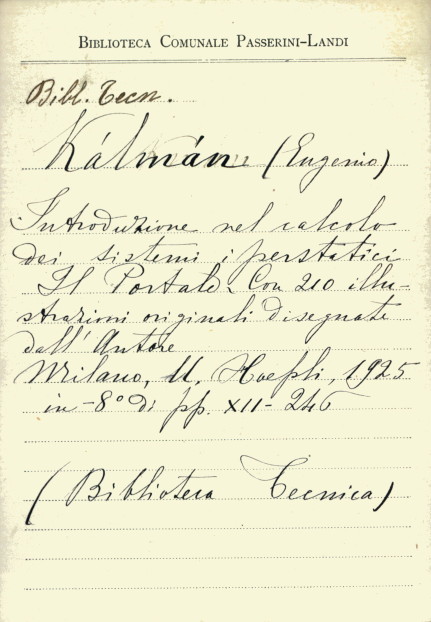 BIBLIOTECA COMUNALE PASSERINI-LANDI
Bibl. Tecn.
Kálmán (Eugenio)
Introduzione nel calcolo
dei sistemi iperstatici
Il Portale. Con 210 illu-
strazioni originali disegnate
dall'Autore
Milano, U. Hoepli, 1925
in-8° di pp. XII-246
(Biblioteca Tecnica)